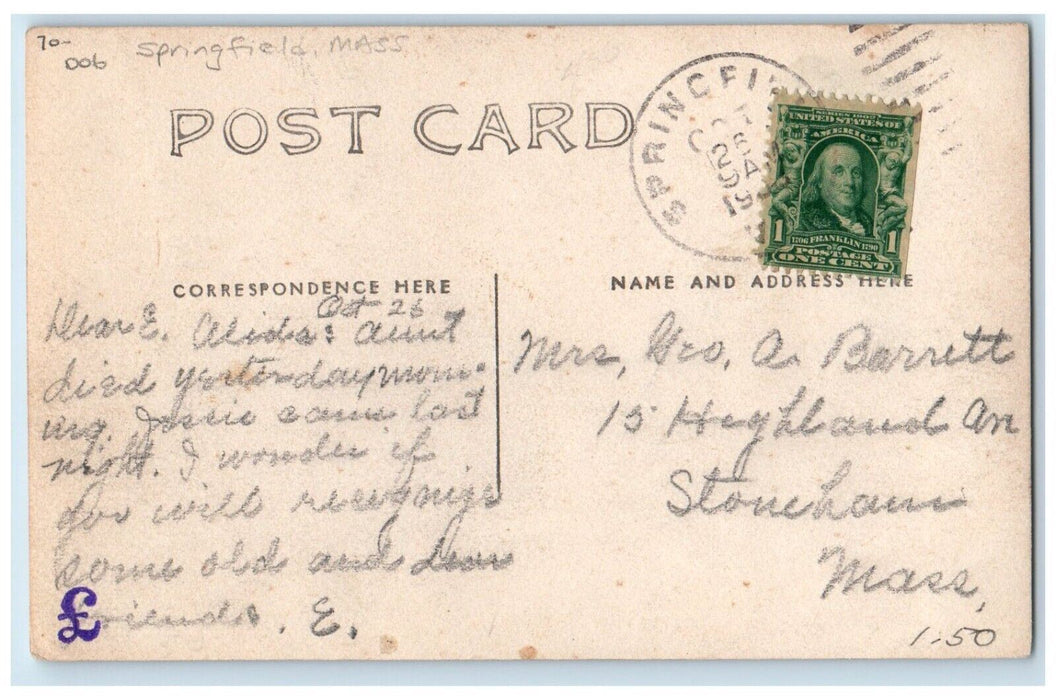 70-
D06
Springfield, MASS
POST CARD
SPRINGFI
SERIES 1902
UNITED STATES OF
AMERICA
1 1
1706 FRANKLIN 1790
POSTAGE
ONE CENT
CORRESPONDENCE HERE
NAME AND ADDRESS HERE
Oct 26
Dear E. Alida's aunt
died yesterday morn-
ing. Jessie came last
night. I wonder if
you will recognize
some old and dear
friends. E.
£
Mrs, Geo, A. Barrett
15 Highland Av
Stoneham
Mass,
1-50